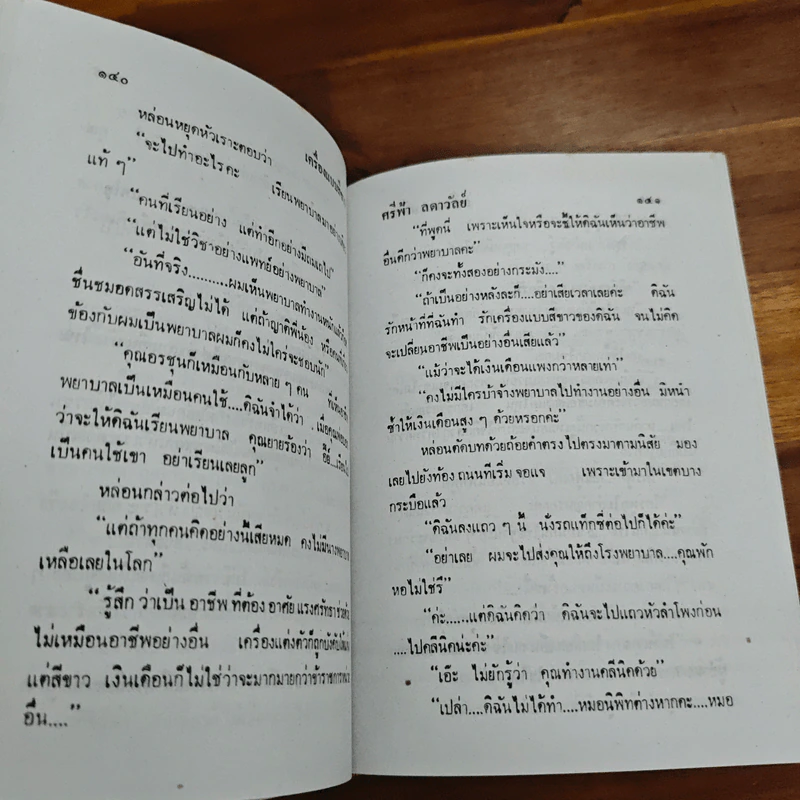 ๑๔๐
หล่อนหยุดหัวเราะตอบว่า
“จะไปทำอะไรคะ เรียนพยาบาลมา
แท้ ๆ”
“คนที่เรียนอย่าง แต่ทำอีกอย่างมีถมเถไป”
“แต่ไม่ใช่วิชาอย่างแพทย์อย่างพยาบาล”
“อันที่จริง.........ผมเห็นพยาบาลทำงานหนักแล้ว
ชื่นชมอดสรรเสริญไม่ได้ แต่ถ้าญาติพี่น้อง หรือคน
ข้องกับผมเป็นพยาบาลผมก็คงไม่ใคร่จะชอบนัก”
“คุณอรชุนก็เหมือนกับหลาย ๆ คน ที่เห็น
พยาบาลเป็นเหมือนคนใช้....ดิฉันจำได้ว่า ..เมื่อคุณ
ว่าจะให้ดิฉันเรียนพยาบาล คุณยายร้องว่า อี๋ย์...
เป็นคนใช้เขา อย่าเรียนเลยลูก”
หล่อนกล่าวต่อไปว่า
“แต่ถ้าทุกคนคิดอย่างนี้เสียหมด คงไม่มีนางพยาบาล
เหลือเลยในโลก”
“รู้สึก ว่าเป็น อาชีพ ที่ต้อง อาศัย แรงศรัทธา
ไม่เหมือนอาชีพอย่างอื่น เครื่องแต่งตัวก็ถูกบังคับ
แต่สีขาว เงินเดือนก็ไม่ใช่ว่าจะมากมายกว่าข้าราชการ
อื่น....”
ศรีฟ้า ลดาวัลย์ ๑๔๑
“ที่พูดนี่ เพราะเห็นใจหรือจะชี้ให้ดิฉันเห็นว่าอาชีพ
อื่นดีกว่าพยาบาลคะ”
“ก็คงจะทั้งสองอย่างกระมัง....”
“ถ้าเป็นอย่างหลังละก็....อย่าเสียเวลาเลยค่ะ ดิฉัน
รักหน้าที่ที่ฉันทำ รักเครื่องแบบสีขาวของดิฉัน จนไม่คิด
จะเปลี่ยนอาชีพเป็นอย่างอื่นเสียแล้ว”
“แม้ว่าจะได้เงินเดือนแพงกว่าหลายเท่า”
“คงไม่มีใครบ้าจ้างพยาบาลไปทำงานอย่างอื่น มิหนำ
ซ้ำให้เงินเดือนสูง ๆ ด้วยหรอกค่ะ”
หล่อนตัดบทด้วยถ้อยคำตรง ไปตรงมาตามนิสัย มอง
เลยไปยังท้อง ถนนที่เริ่ม จอแจ เพราะเข้ามาในเขตบาง
กระบือแล้ว
“ดิฉันลงแถว ๆ นี้ นั่งรถแท็กซี่ต่อไปก็ได้ค่ะ”
“อย่าเลย ผมจะไปส่งคุณให้ถึงโรงพยาบาล....คุณพัก
หอไม่ใช่รึ”
“ค่ะ......แต่ดิฉันคิดว่า ดิฉันจะไปแถวหัวลำโพงก่อน
....ไปคลีนิคน่ะค่ะ”
“เอ๊ะ ไม่ยักรู้ว่า คุณทำงานคลีนิคด้วย”
“เปล่า....ดิฉันไม่ได้ทำ....หมอนิพิทต่างหากคะ....หมอ